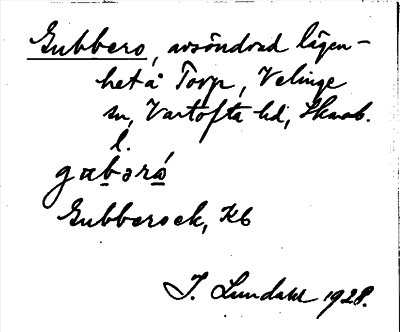 Gubbero, avsöndrad lägen-
het å Torp, Velinge
sn, Vartofta hd, Skarab.
l.
gɯbəró
Gubberoek, Kb
I. Lundahl 1928.